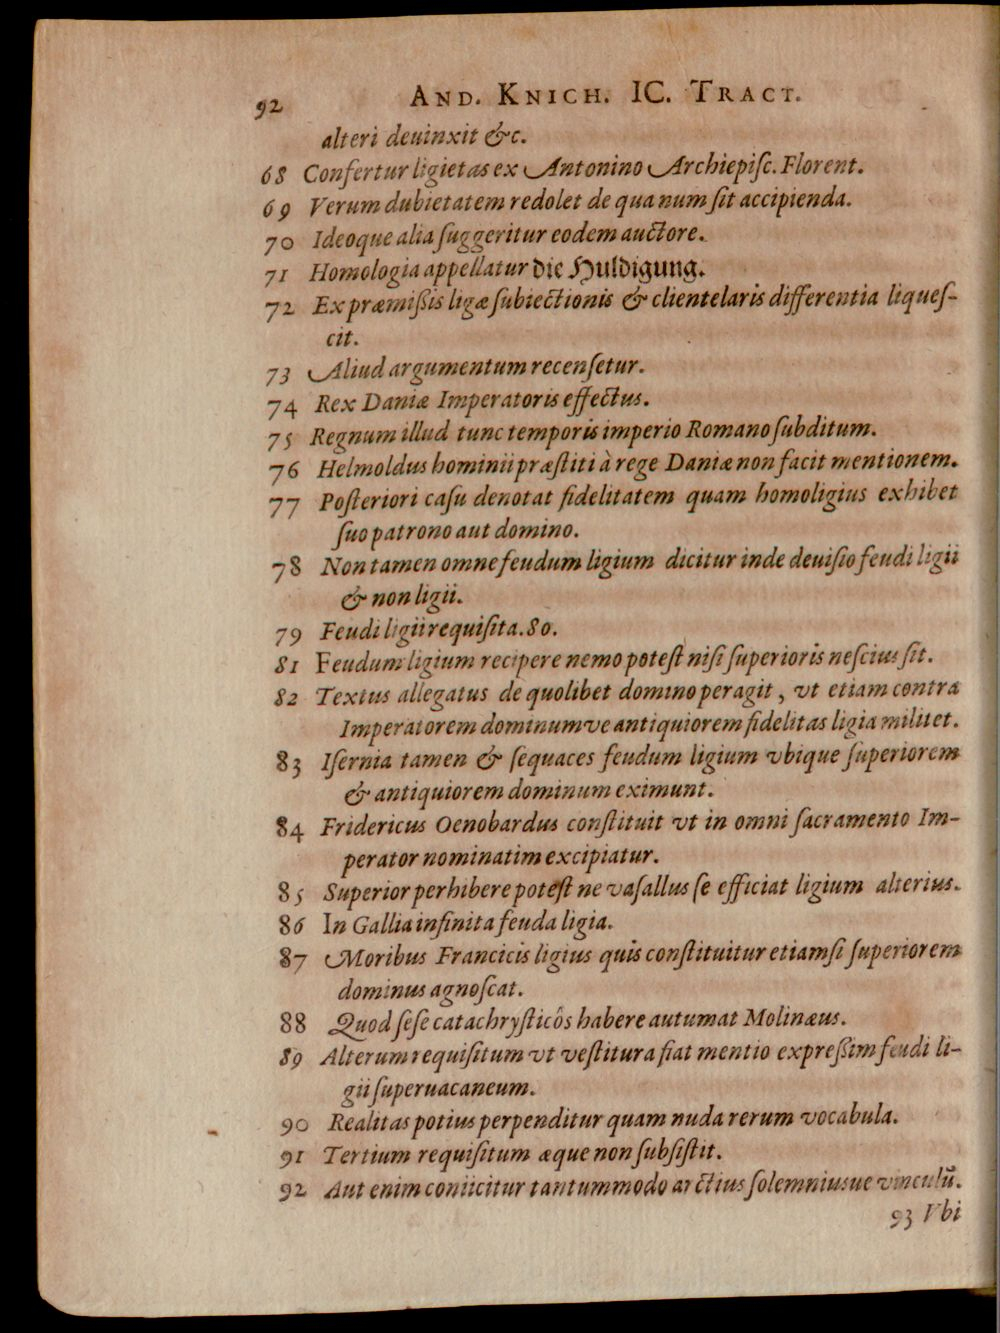 92 AND. KNICH. IC. TRACT.
alteri deuinxit &c.
68 Confertur ligietas ex Antonino Archiepiſc. Florent.
69 Verum dubietatem redolet de qua num ſit accipienda.
70 Ideoque alia ſuggeritur eodem auctore.
71 Homologia appellatur die Huldigung.
72 Ex præmiſsis ligæ ſubiectionis & clientelaris differentia liqueſ-
cit.
73 Aliud argumentum recenſetur.
74 Rex Daniæ Imperatoris effectus.
75 Regnum illud tunc temporis imperio Romano ſubditum.
76 Helmoldus hominii præſtiti à rege Daniæ non facit mentionem.
77 Poſteriori caſu denotat fidelitatem quam homoligius exhibet
ſuo patrono aut domino.
78 Non tamen omne feudum ligium dicitur inde deuiſio feudi ligii
& non ligii.
79 Feudi ligii requiſita. 80.
81 Feudum ligium recipere nemo poteſt niſi ſuperioris neſcius ſit.
82 Textus allegatus de quolibet domino peragit, vt etiam contra
Imperatorem dominumve antiquiorem fidelitas ligia militet.
83 Iſernia tamen & ſequaces feudum ligium vbique ſuperiorem
& antiquiorem dominum eximunt.
84 Fridericus Oenobardus conſtituit vt in omni ſacramento Im-
perator nominatim excipiatur.
85 Superior perhibere poteſt ne vaſallus ſe efficiat ligium alterius.
86 In Gallia infinita feuda ligia.
87 Moribus Francicis ligius quis conſtituitur etiamſi ſuperiorem
dominus agnoſcat.
88 Quod ſeſe catachryſticôs habere autumat Molinæus.
89 Alterum requiſitum vt veſtitura fiat mentio expreſsim feudi li-
gii ſuperuacaneum.
90 Realitas potius perpenditur quam nuda rerum vocabula.
91 Tertium requiſitum æque non ſubſiſtit.
92 Aut enim coniicitur tantummodo arctius ſolemniusue vinculũ.
93 Vbi